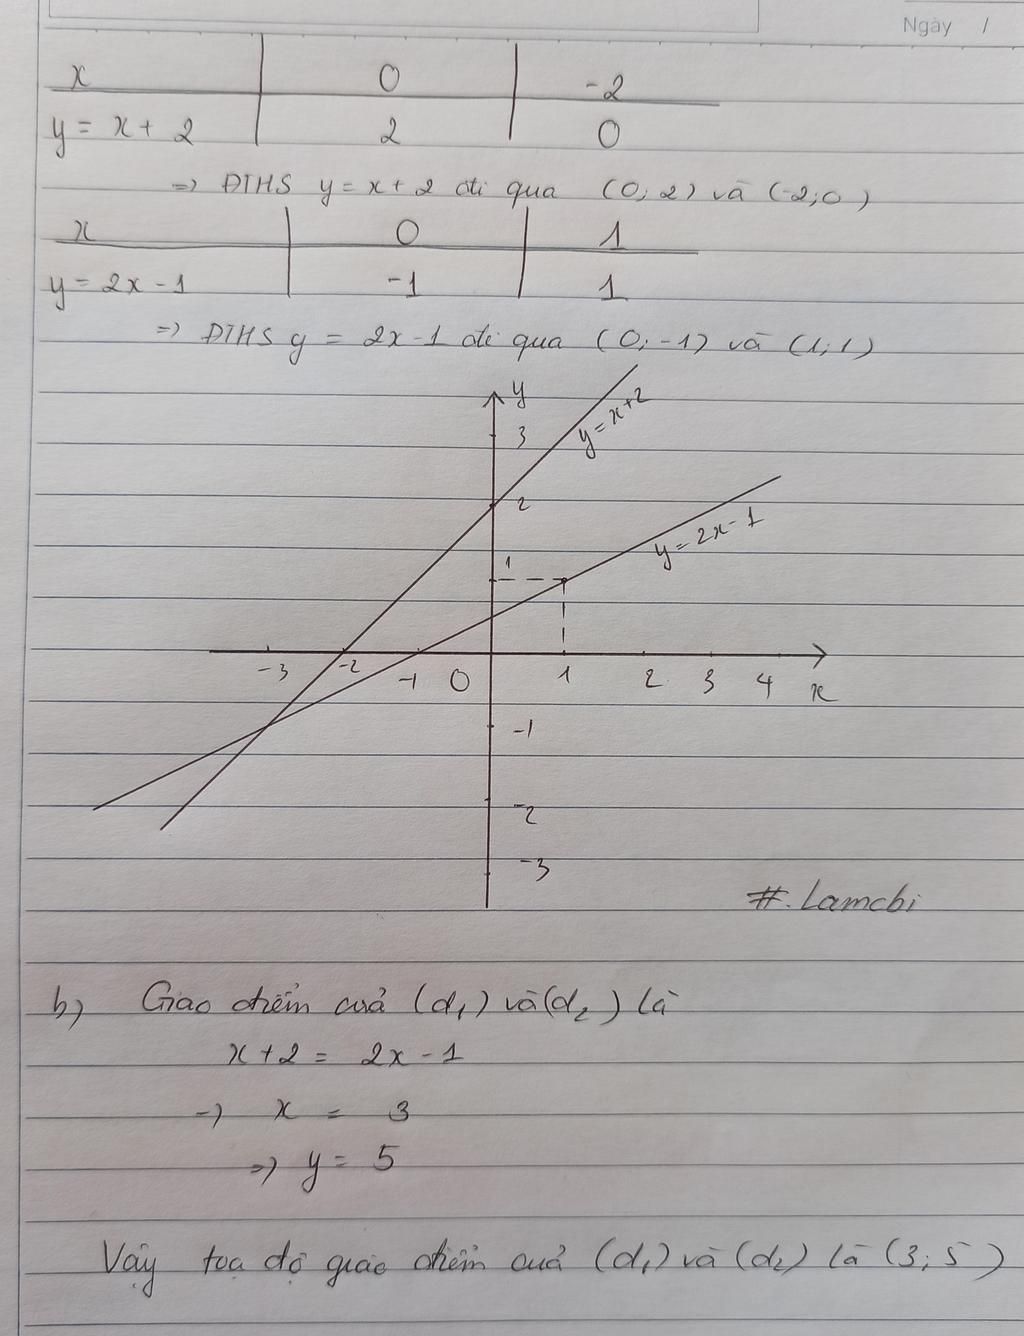 Ngày /
x 0 -2
y = x + 2 2 0
=> ĐTHS y = x + 2 đi qua (0; 2) và (-2; 0)
x 0 1
y = 2x - 1 -1 1
=> ĐTHS y = 2x - 1 đi qua (0; -1) và (1; 1)
y
3
y = x + 2
2
y = 2x - 1
1
-3 -2 -1 O 1 2 3 4 x
-1
-2
-3
#. Lamcbi
b) Giao điểm của (d₁) và (d₂) là
x + 2 = 2x - 1
-> x = 3
=> y = 5
Vậy toạ độ giao điểm của (d₁) và (d₂) là (3; 5)